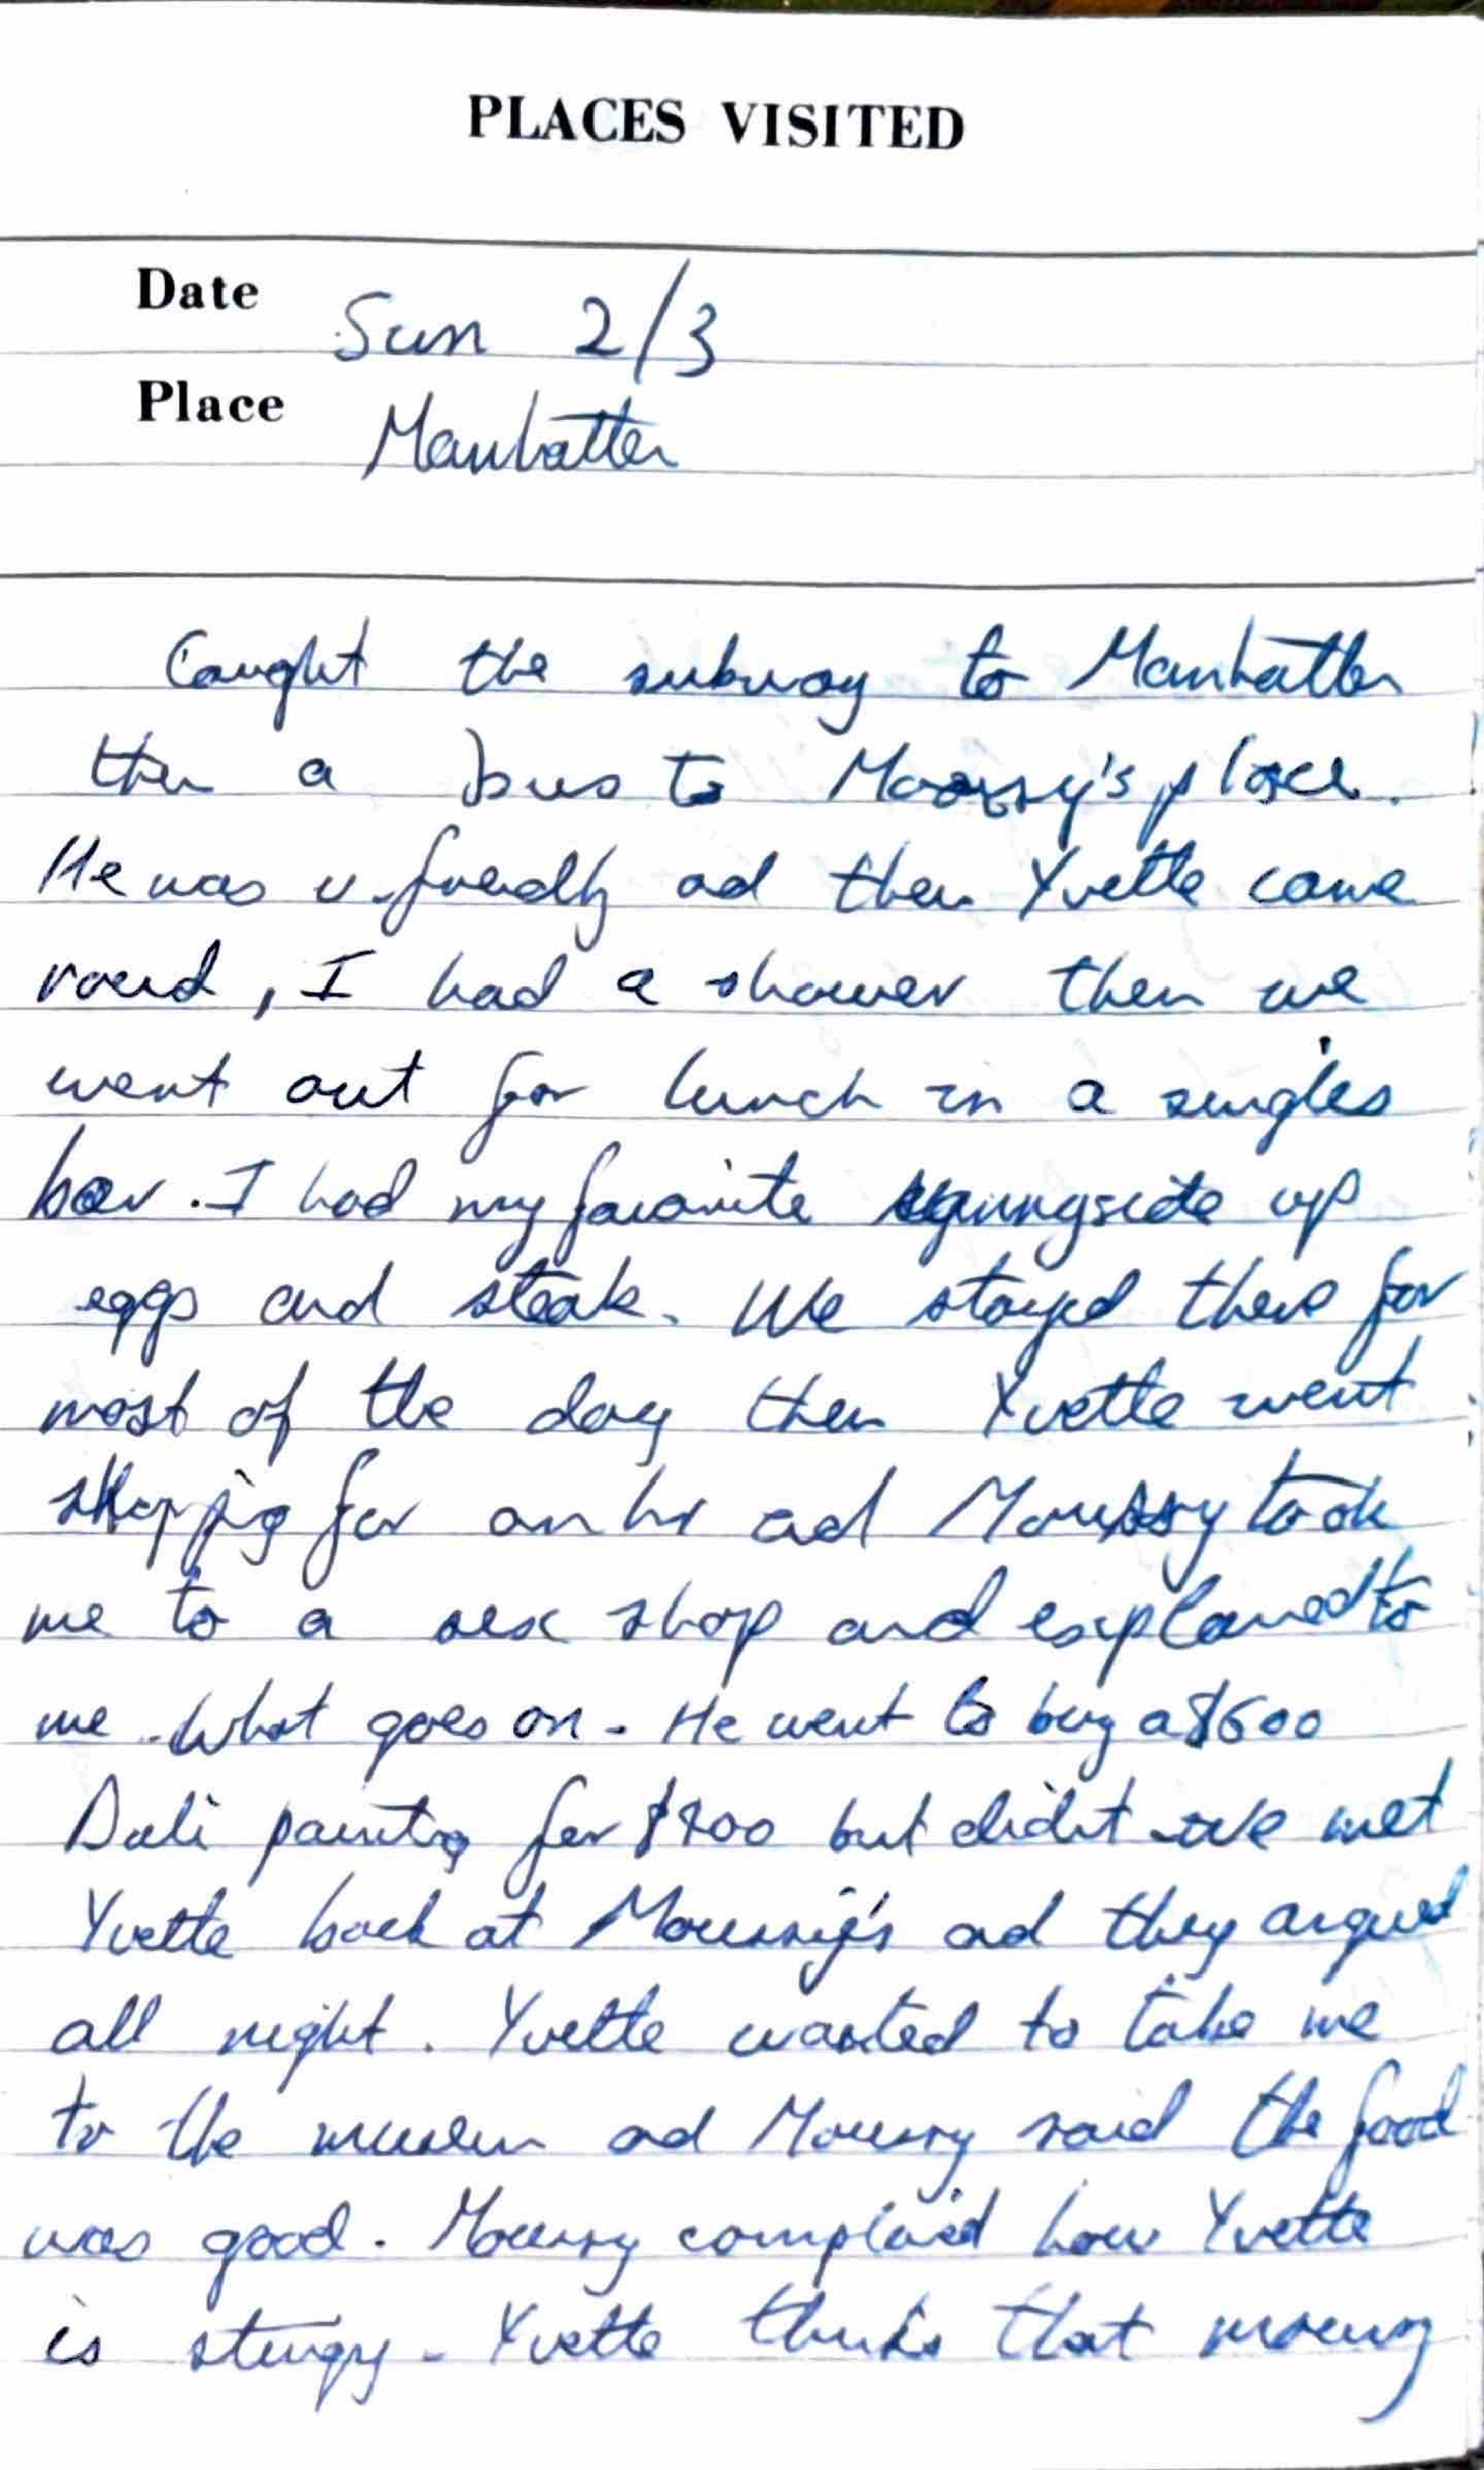 PLACES VISITED
Date Sun 2/3
Place Manhatten
Caught the subway to Manhatten
then a bus to Moussy's place.
He was v. friendly ad then Yvette came
round, I had a shower then we
went out for lunch in a singles
bar. I had my favorite sunnyside up
eggs and steak. We stayed there for
most of the day then Yvette went
shopping for an hr ad Moussy took
me to a sex shop and explained to
me what goes on. He went to buy a $600
Dali painting for $200 but didnt we met
Yvette back at Moussy's ad they argued
all night. Yvette wanted to take me
to the museum ad Moussy said the food
was good. Moussy complained how Yvette
is stingy. Yvette thinks that moussy